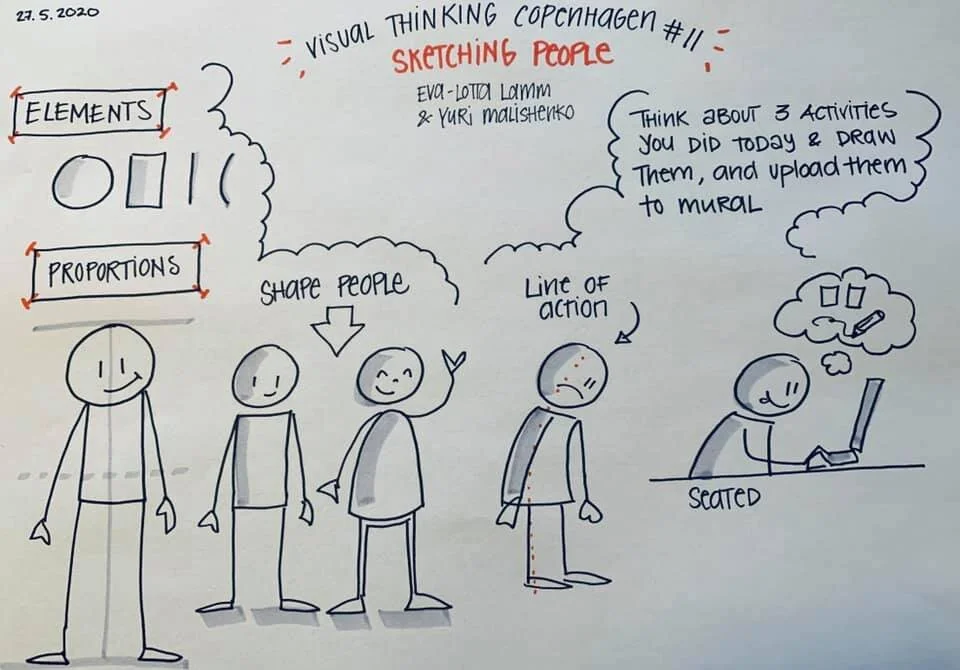 27.5.2020
VISUAL THINKING COPENHAGEN #11
SKETCHING PEOPLE
EVA-LOTTA LAMM
& YURI MALISHENKO
ELEMENTS
THINK ABOUT 3 ACTIVITIES
YOU DID TODAY & DRAW
THEM, AND UPLOAD THEM
TO MURAL
PROPORTIONS
SHAPE PEOPLE
LINE OF
ACTION
SEATED